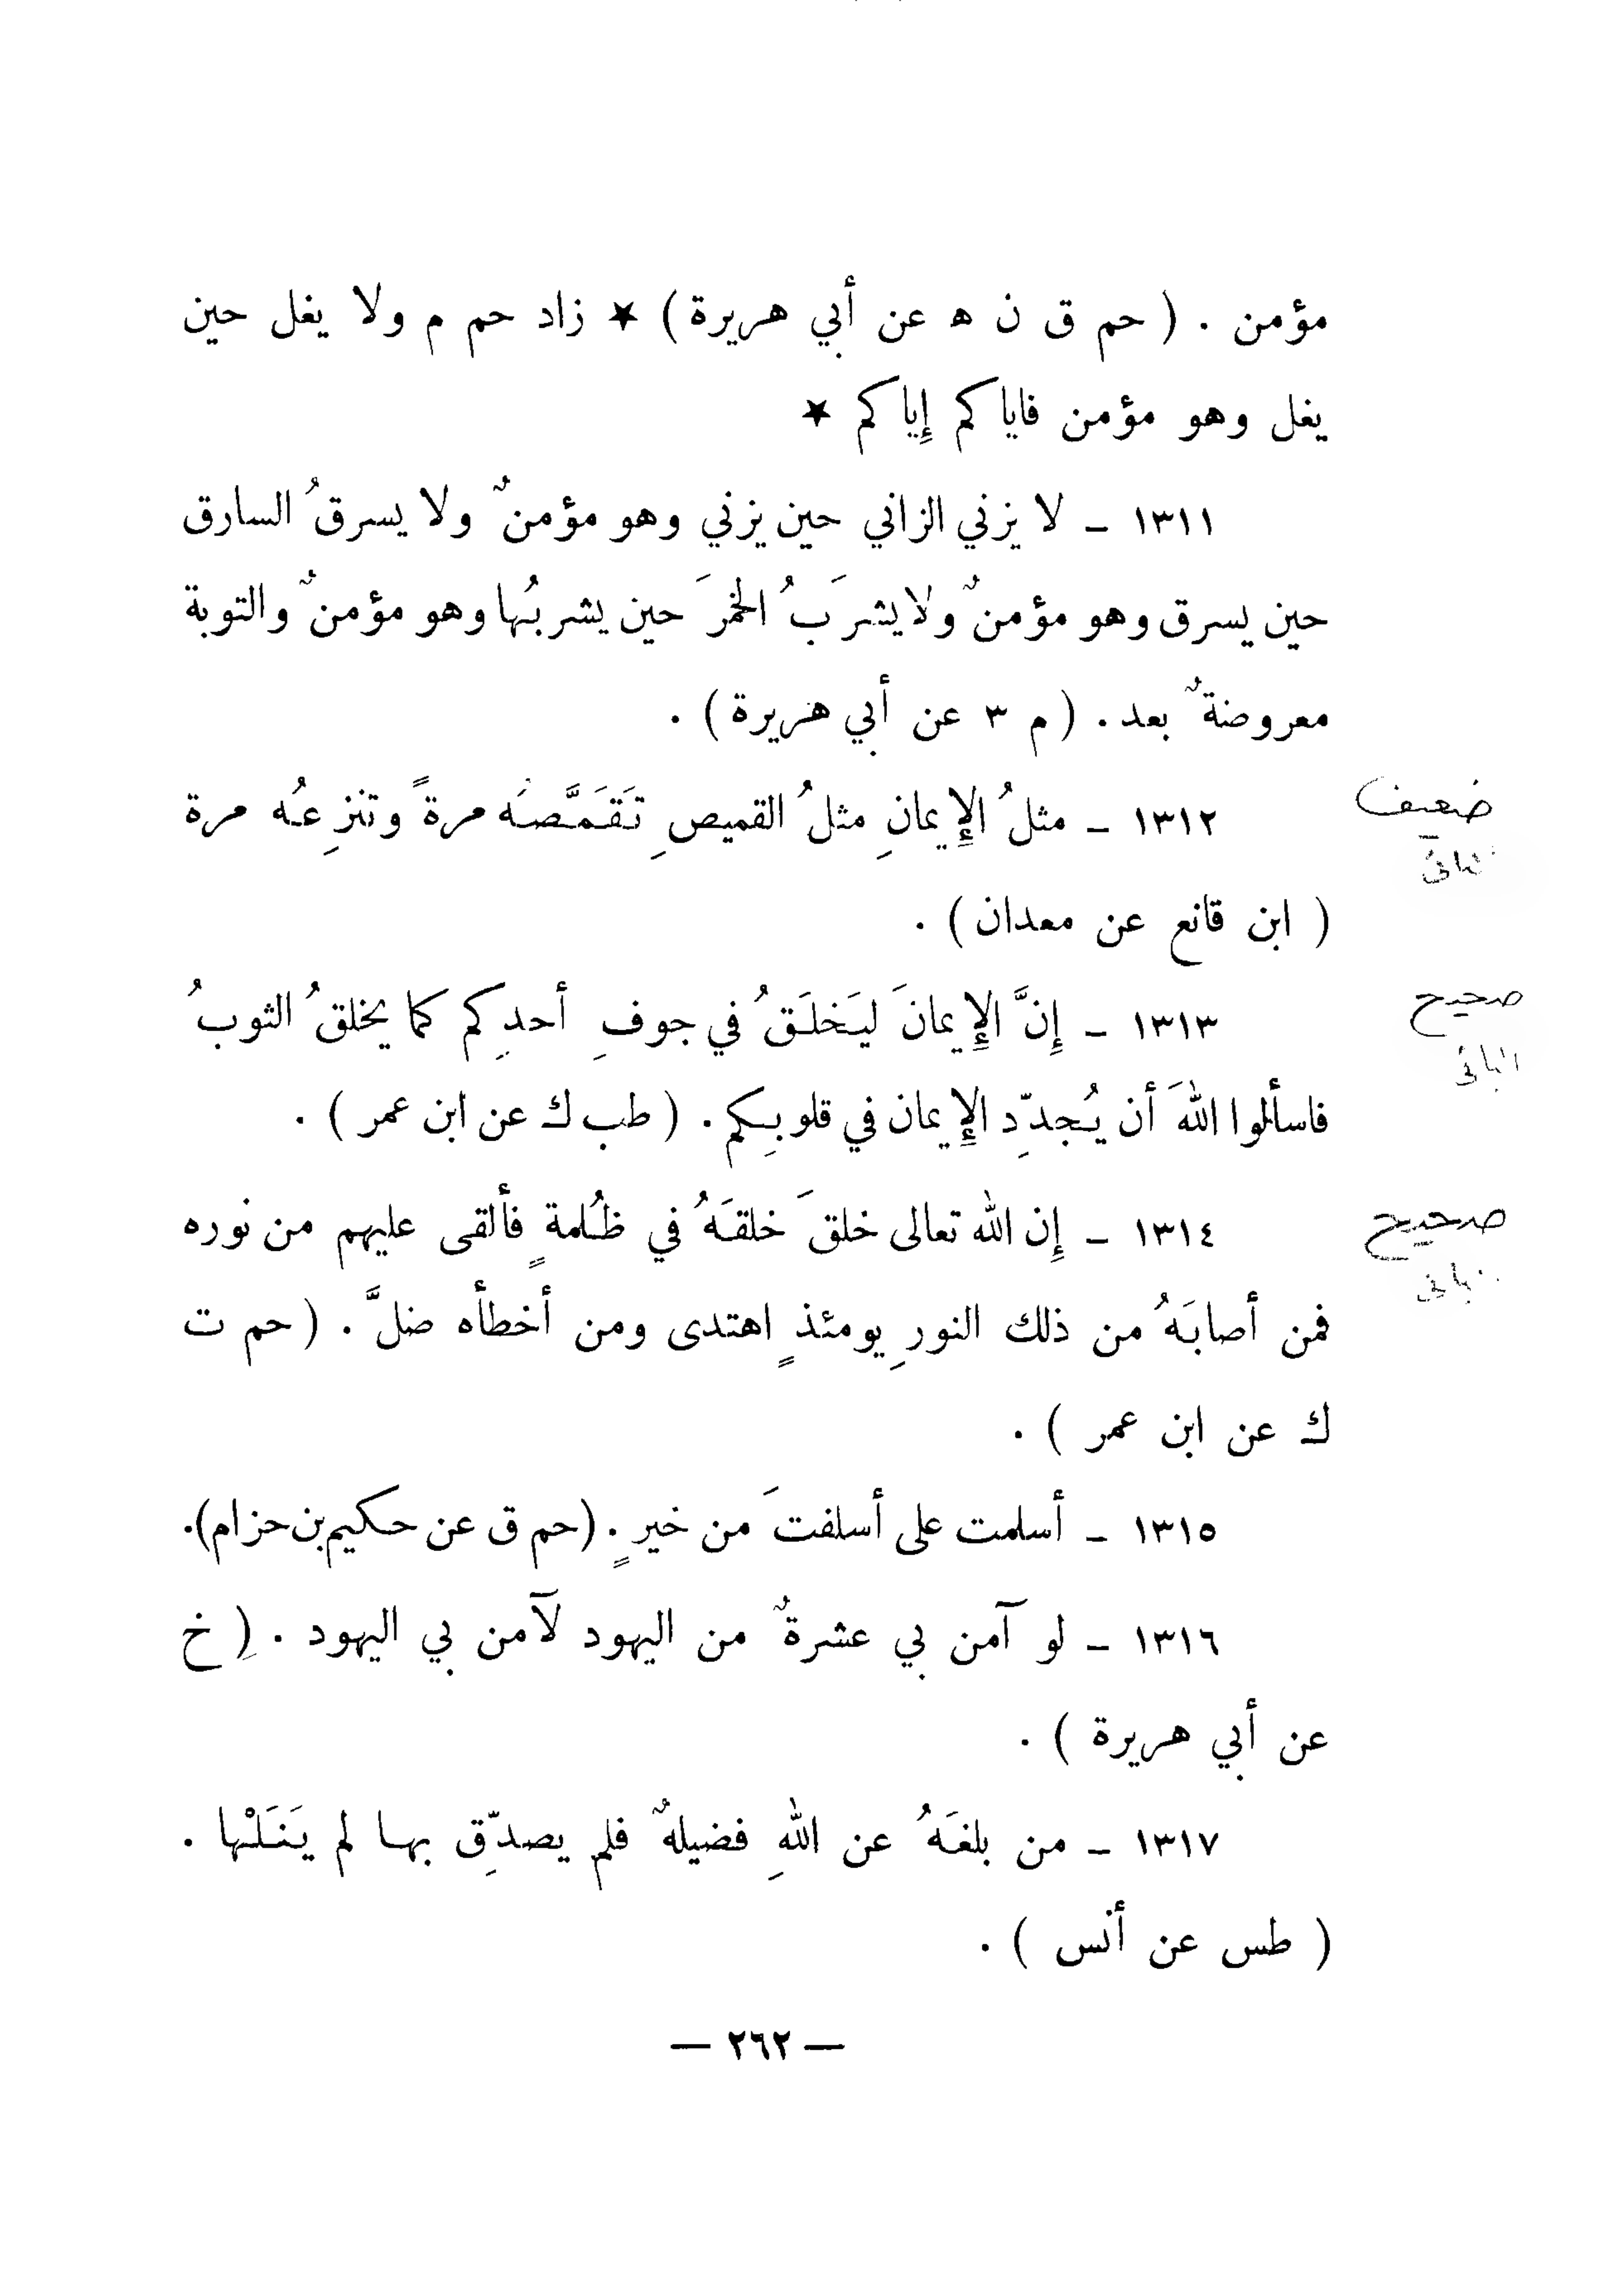 مؤمن . ( حم ق ن ه عن أبي هريرة ) ★ زاد حم م ولا يغل حين
يغل وهو مؤمن فاياكم إياكم ★
١٣١١ ـ لا يزني الزاني حين يزني وهو مؤمنٌ ولا يسرقُ السارق
حين يسرق وهو مؤمنٌ ولا يشرَبُ الخمرَ حين يشربُها وهو مؤمنٌ والتوبة
معروضةٌ بعد . ( م ٣ عن أبي هريرة ) .
١٣١٢ ـ مثلُ الإِيمانِ مثلُ القميصِ تَقَمَّصَه مرةً وتنزِعُه مرة
ضعيف
( ابن قانع عن معدان ) .
١٣١٣ ـ إِنَّ الإِيمانَ ليَخلَقُ في جوفِ أحدِكم كما يخلقُ الثوبُ
صحيح
البانى
فاسألوا اللهَ أن يُجدِّد الإِيمان في قلوبِكم . ( طب ك عن ابن عمر ) .
١٣١٤ ـ إِن الله تعالى خلقَ خلقَهُ في ظُلمةٍ فألقى عليهم من نوره
صحيح
فمن أصابَهُ من ذلك النورِ يومئذٍ اهتدى ومن أخطأه ضلَّ . ( حم ت
ك عن ابن عمر ) .
١٣١٥ ـ أسلمت على أسلفتَ من خيرٍ . (حم ق عن حكيم بن حزام).
١٣١٦ ـ لو آمن بي عشرةٌ من اليهود لآمن بي اليهود . ( خ
عن أبي هريرة ) .
١٣١٧ ـ من بلغَهُ عن اللهِ فضيلهٌ فلم يصدِّق بها لم يَنَلْها .
( طس عن أنس ) .
— ٢٦٢ —